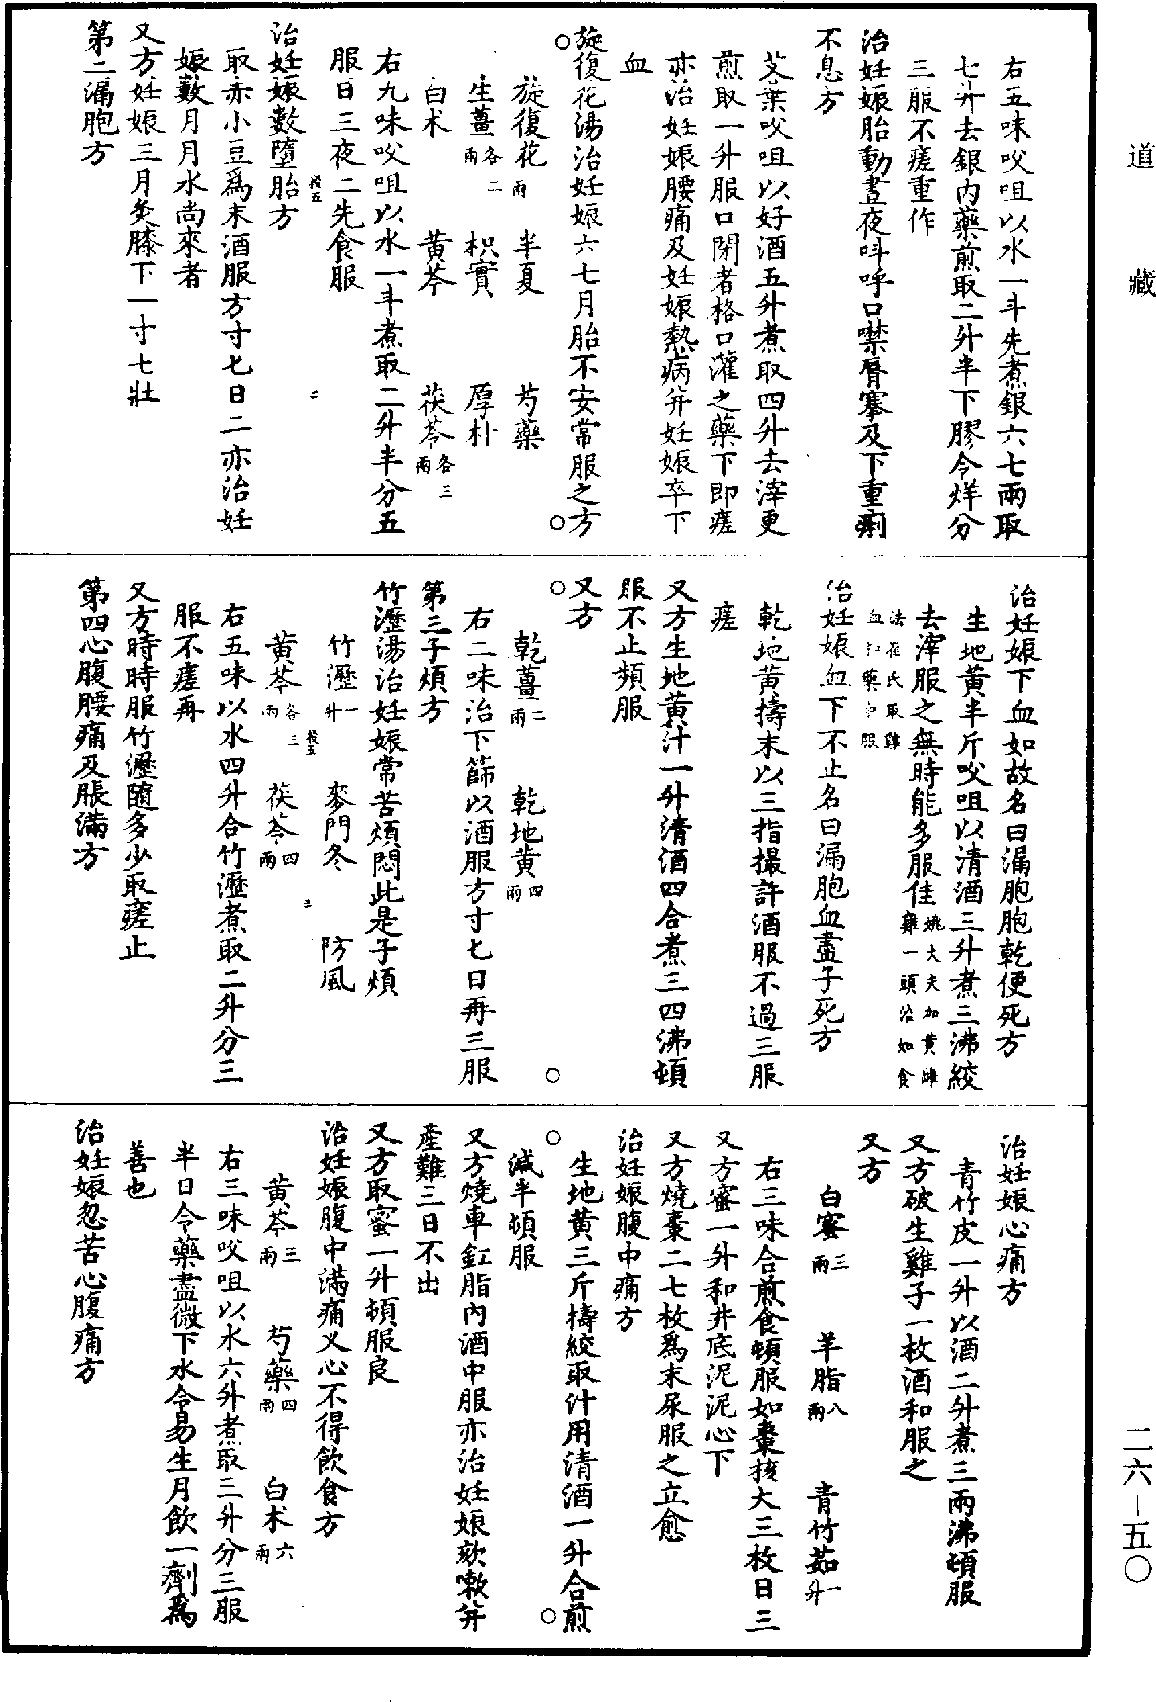 道藏
右五味㕮咀以水一斗先煮銀六七兩取
七升去銀內藥煎取二升半下膠令烊分
三服不瘥重作
治妊娠胎動晝夜呌呼口噤脣搴及下重痢
不息方
艾葉㕮咀以好酒五升煮取四升去滓更
煎取一升服口閉者格口灌之藥下即瘥
亦治妊娠腰痛及妊娠熱病并妊娠卒下
血
旋復花湯治妊娠六七月胎不安常服之方
旋復花兩 半夏 芍藥
生薑各二兩 枳實 厚朴
白术 黃芩 茯苓各三兩
右九味㕮咀以水一斗煮取二升半分五
服日三夜二先食服
治妊娠數墮胎方
取赤小豆爲末酒服方寸匕日二亦治妊
娠數月月水尚來者
又方妊娠三月灸膝下一寸七壯
第二漏胞方
治妊娠下血如故名曰漏胞胞乾便死方
生地黃半斤㕮咀以清酒三升煮三沸絞
去滓服之無時能多服佳姚大夫加黃雌雞一頭治如食
法崔氏取雞血和藥中服
治妊娠血下不止名曰漏胞血盡子死方
乾地黃擣末以三指撮許酒服不過三服
瘥
又方生地黃汁一升清酒四合煮三四沸頓
服不止頻服
又方
乾薑二兩 乾地黃四兩
右二味治下篩以酒服方寸匕日再三服
第三子煩方
竹瀝湯治妊娠常苦煩悶此是子煩
竹瀝一升 麥門冬 防風
黃芩各三兩 茯苓四兩
右五味以水四升合竹瀝煮取二升分三
服不瘥再
又方時時服竹瀝隨多少取瘥止
第四心腹腰痛及脹滿方
治妊娠心痛方
青竹皮一升以酒二升煮三兩沸頓服
又方破生雞子一枚酒和服之
又方
白蜜三兩 羊脂八兩 青竹茹一升
右三味合煎食頓服如棗核大三枚日三
又方蜜一升和井底泥泥心下
又方燒棗二七枚爲末尿服之立愈
治妊娠腹中痛方
生地黃三斤擣絞取汁用清酒一升合煎
減半頓服
又方燒車釭脂內酒中服亦治妊娠欬嗽并
產難三日不出
又方取蜜一升頓服良
治妊娠腹中滿痛叉心不得飲食方
黃芩三兩 芍藥四兩 白术六兩
右三味㕮咀以水六升煮取三升分三服
半日令藥盡微下水令易生月飲一劑爲
善也
治妊娠忽苦心腹痛方
二六－五〇